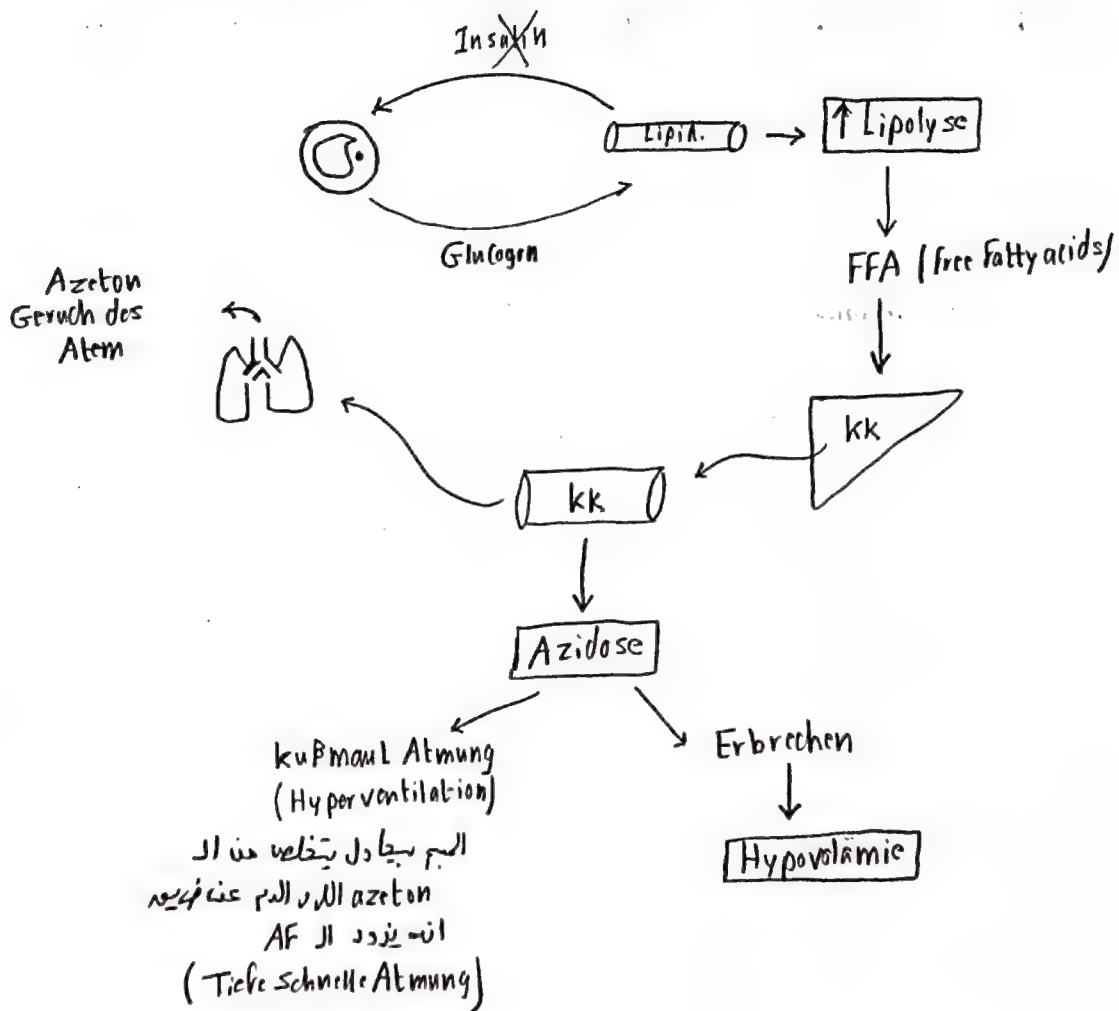 Insulin
Lipid.
↑ Lipolyse
Glucogon
FFA (free Fatty acids)
Azeton
Geruch des
Atem
kk
kk
Azidose
kußmaul Atmung
(Hyperventilation)
Erbrechen
الجسم بيحاول يتخلص من ال
azeton اللي في الدم عن طريق
انه يزود ال AF
(Tiefe schnelle Atmung)
Hypovolämie